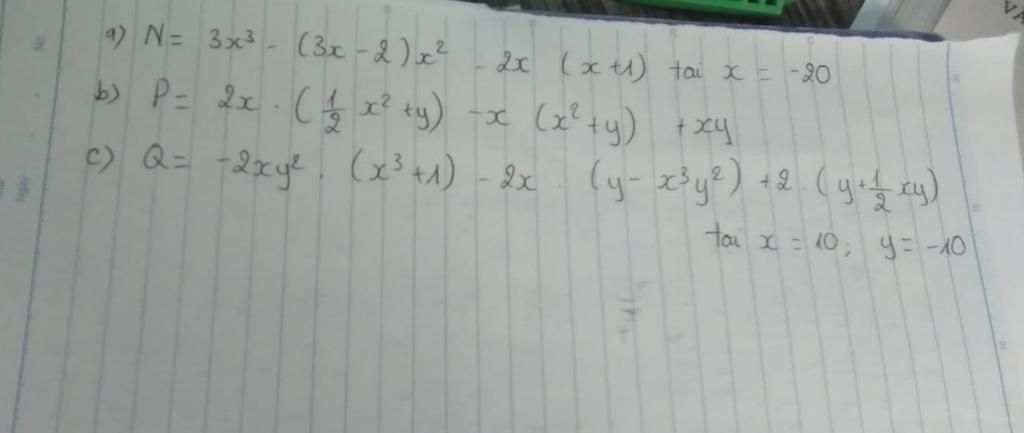 a) N = 3x³ - (3x - 2)x² - 2x (x+1) tại x = -20
b) P = 2x . (1/2 x² + y) - x (x² + y) + xy
c) Q = -2xy² . (x³ + 1) - 2x . (y - x³y²) + 2 . (y + 1/2 xy)
tại x = 10; y = -10